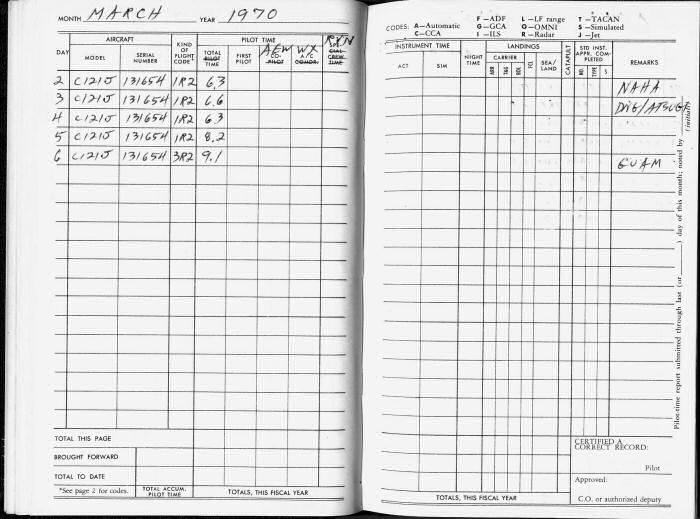 MONTH MARCH YEAR 1970
AIRCRAFT
PILOT TIME
DAY
MODEL
SERIAL NUMBER
KIND OF FLIGHT CODE*
TOTAL PILOT TIME
FIRST PILOT
AEW
CO-PILOT
WX
A/C COMDR.
SPE-CIAL CREW TIME
2 C121J 131654 1R2 6.3
3 C121J 131654 1R2 6.6
4 C121J 131654 1R2 6.3
5 C121J 131654 1R2 8.2
6 C121J 131654 3R2 9.1
TOTAL THIS PAGE
BROUGHT FORWARD
TOTAL TO DATE
*See page 2 for codes.
TOTAL ACCUM. PILOT TIME
TOTALS, THIS FISCAL YEAR
CODES: A—Automatic F—ADF L—LF range T—TACAN
C—CCA G—GCA O—OMNI S—Simulated
I—ILS R—Radar J—Jet
INSTRUMENT TIME
ACT
SIM
NIGHT TIME
LANDINGS
CARRIER
ARR
TAG
BOL
FCL
SEA/LAND
CATAPULT
STD INST. APPR. COMPLETED
NO.
TYPE
S
REMARKS
NAHA
DNG/ATSUGI
GUAM
Pilot-time report submitted through last (or ) day of this month; noted by
(initials)
CERTIFIED A CORRECT RECORD:
Pilot
Approved:
C.O. or authorized deputy
TOTALS, THIS FISCAL YEAR